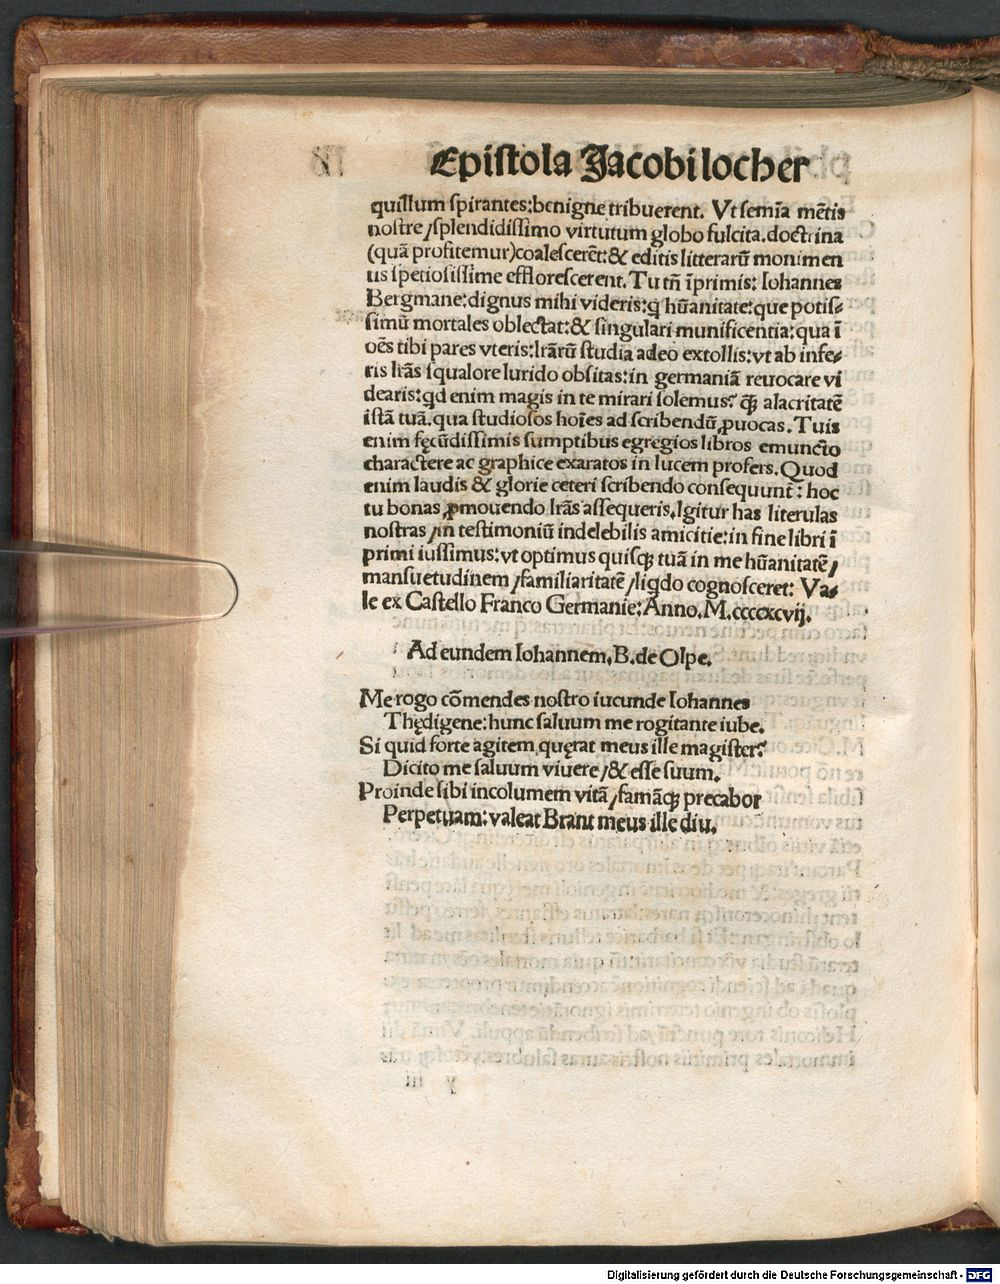 Epistola Jacobi locher
quillum spirantes: benigne tribuerent. Vt semīa mētis
nostre / splendidissimo virtutum globo fulcita. doctrina
(quā profitemur) coalescerēt: & editis litterarū monimen
tis spetiosissime efflorescerent. Tu tñ īprimis: Iohannes
Bergmane: dignus mihi videris: q̨ hūanitate: que potis⸗
simū mortales oblectat: & singulari munificentia: qua ī
oēs tibi pares vteris: lr̄arū studia adeo extollis: vt ab infe⸗
ris lr̄as squalore lurido obsitas: in germaniā reuocare vi
dearis: qd enim magis in te mirari solemus? q̄ꝫ alacritatē
istā tuā. qua studiosos hoīes ad scribendū ꝓuocas. Tuis
enim fęcūdissimis sumptibus egregios libros emuncto
charactere ac graphice exaratos in lucem profers. Quod
enim laudis & glorie ceteri scribendo consequunt̄: hoc
tu bonas ꝓmouendo lr̄as assequeris. Igitur has literulas
nostras / in testimoniū indelebilis amicitie: in fine libri ī
primi iussimus: vt optimus quisqꝫ tuā in me hūanitatē /
mansuetudinem / familiaritatē / liqdo cognosceret: Va⸗
le ex Castello Franco Germanie: Anno. M. ccccxcvij.
Ad eundem Iohannem. B. de Olpe.
Me rogo cōmendes nostro iucunde Iohannes
Thędigene: hunc saluum me rogitante iube.
Si quid forte agitem quęrat meus ille magister?
Dicito me saluum viuere / & esse suum.
Proinde sibi incolumem vitā / famāqꝫ precabor
Perpetuam: valeat Brant meus ille diu.
Digitalisierung gefördert durch die Deutsche Forschungsgemeinschaft - DFG